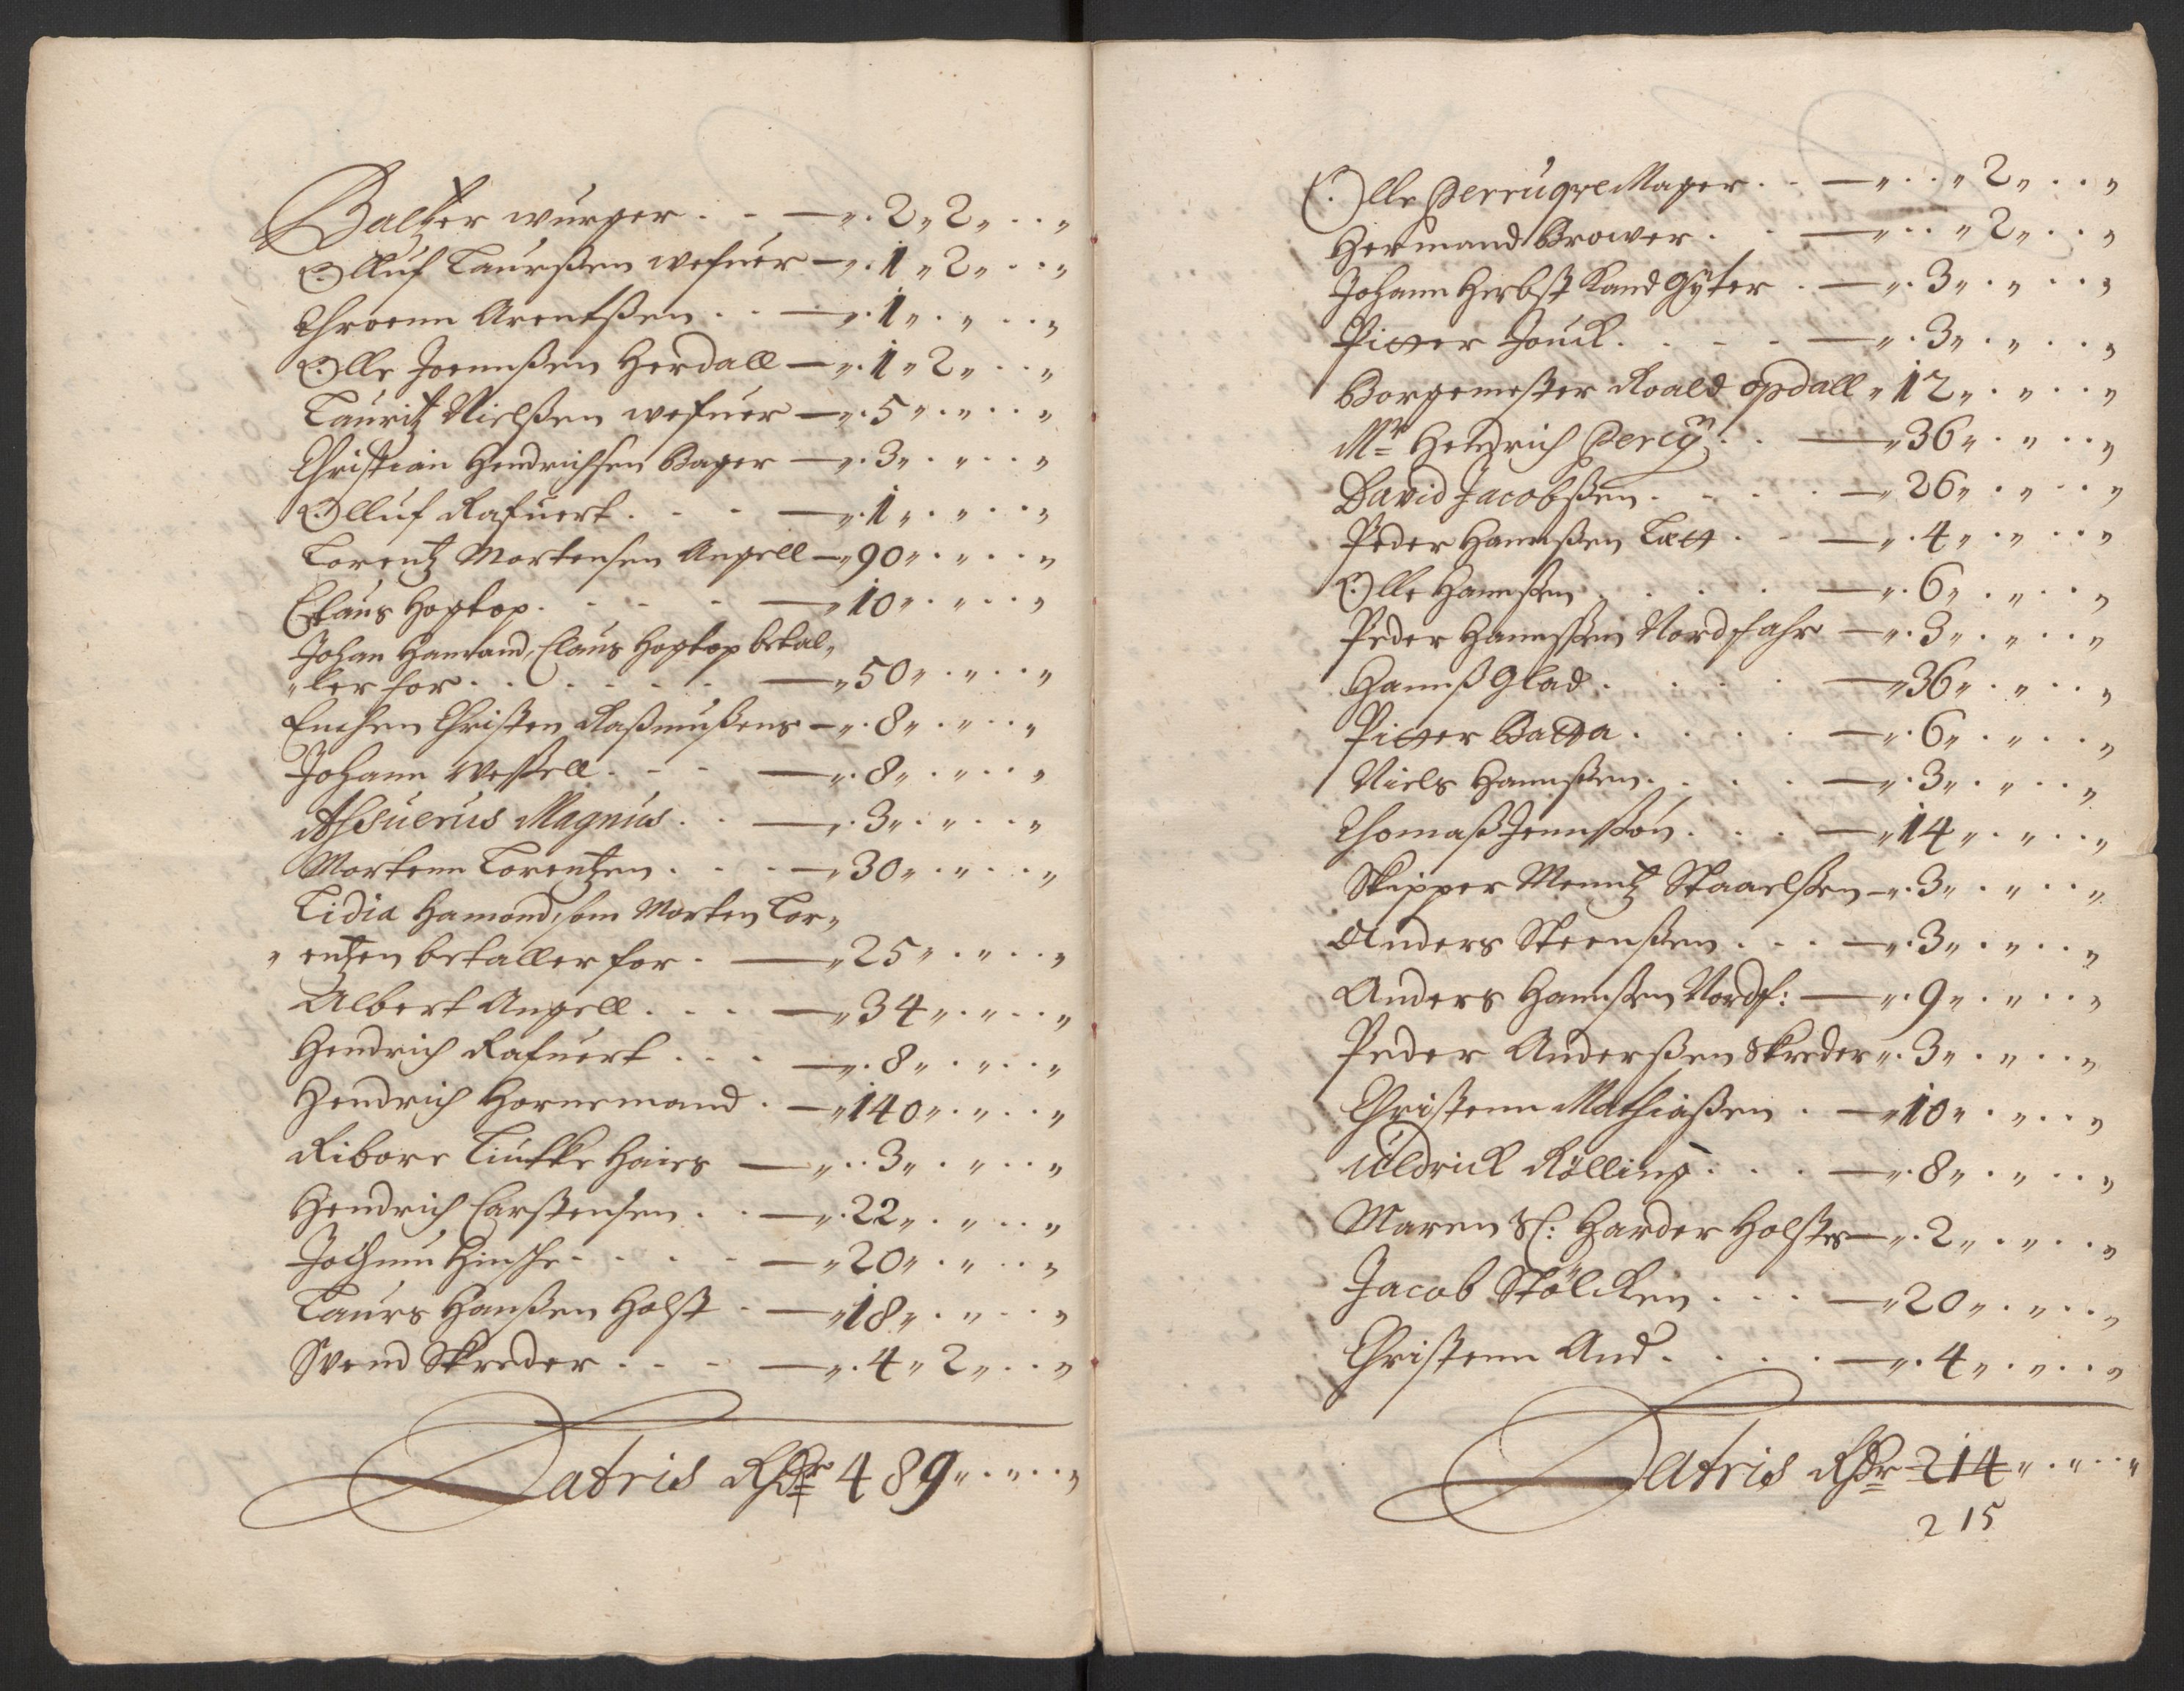 Baltzer wurger . . — „ . 2 „ 2 „ . . „
Olluf Laurßen wefuer — „ . 1 „ 2 „ . . „
Throenn Arentßen . . — „ . 1 „ . „ . . „
Olle Joennßen Herdall — „ . 1 „ 2 „ . . „
Lauritz Nielßen wefuer — „ . 5 „ . „ . . „
Christian Hendrichsen Bager — „ . 3 „ . „ . . „
Olluf Rafuert . . . — „ . 1 „ . „ . . „
Lorentz Mortensen Angell — „ 90 „ . „ . . „
Claus Hopkop . . . . — „ 10 „ . „ . . „
Johan Hamand, Claus Hopkop betal„
„ler for . . . . . . — „ 50 „ . „ . . „
Enchen Christen Raßmußens — „ . 8 „ . „ . . „
Johann Weßell . . . — „ . 8 „ . „ . . „
Assuerus Magnus . . — „ . 3 „ . „ . . „
Mortenn Lorentzen . . . — „ 30 „ . „ . . „
Lidia Hamond, som Morten Lor„
„ entzen betaller for . — „ 25 „ . „ . . „
Albert Angell . . . — „ 34 „ . „ . . „
Hendrich Rafuert . . . — „ . 8 „ . „ . . „
Hendrich Hornemand . — „ 140 „ . „ . . „
Ribore Haies — „ . . 3 „ . „ . . „
Hendrich Carstensen . . — „ . 22 „ . „ . . „
Jochum Hinsche . . . . — „ 20 „ . „ . . „
Laurs Hanßen Holst . — „ 18 „ . „ . . „
Svend Skreder . . . — „ . 4 „ 2 „ . . „
Latris Rdr 489 „ . „ . . „
Olle Perruqve Mager . . — „ . . „ 2 „ . . „
Hermand Brower . . — „ . . „ 2 „ . . „
Johann Herbst Kand Gÿter . — „ . 3 „ . „ . . „
Pitter Jouck . . . . — „ . 3 „ . „ . . „
Borgemester Roald opdall „ 12 „ . „ . . „
Mr Hendrich Percÿ . . — „ 36 „ . „ . . „
David Jacobßen . . . . — „ 26 „ . „ . . „
Peder Hannßen Lætt . . — „ . 4 „ . „ . . „
Olle Hannßen . . . . — „ . 6 „ . „ . . „
Peder Hannßen Nordfahr — „ . 3 „ . „ . . „
Hannß Glad . . . . — „ 36 „ . „ . . „
Pitter Batta . . . . — „ . 6 „ . „ . . „
Niels Hannßen . . . . — „ . 3 „ . „ . . „
Thomaß Jennßøn . . . — „ 14 „ . „ . . „
Skipper Mentz Staaelßen — „ . 3 „ . „ . . „
Anders Steenßen . . . — „ . 3 „ . „ . . „
Anders Hannßen Nordf: — „ . 9 „ . „ . . „
Peder Anderßen Skreder „ . 3 „ . „ . . „
Christenn Mathiaßen . — „ 10 „ . „ . . „
Uldrick Rölling . . . — „ . 8 „ . „ . . „
Maren Sl: Harder Holstes — „ . 2 „ . „ . . „
Jacob Stölcken . . . — „ 20 „ . „ . . „
Christenn And . . . . — „ . 4 „ . „ . . „
Latris Rdr 214 „ . „ . . „
215